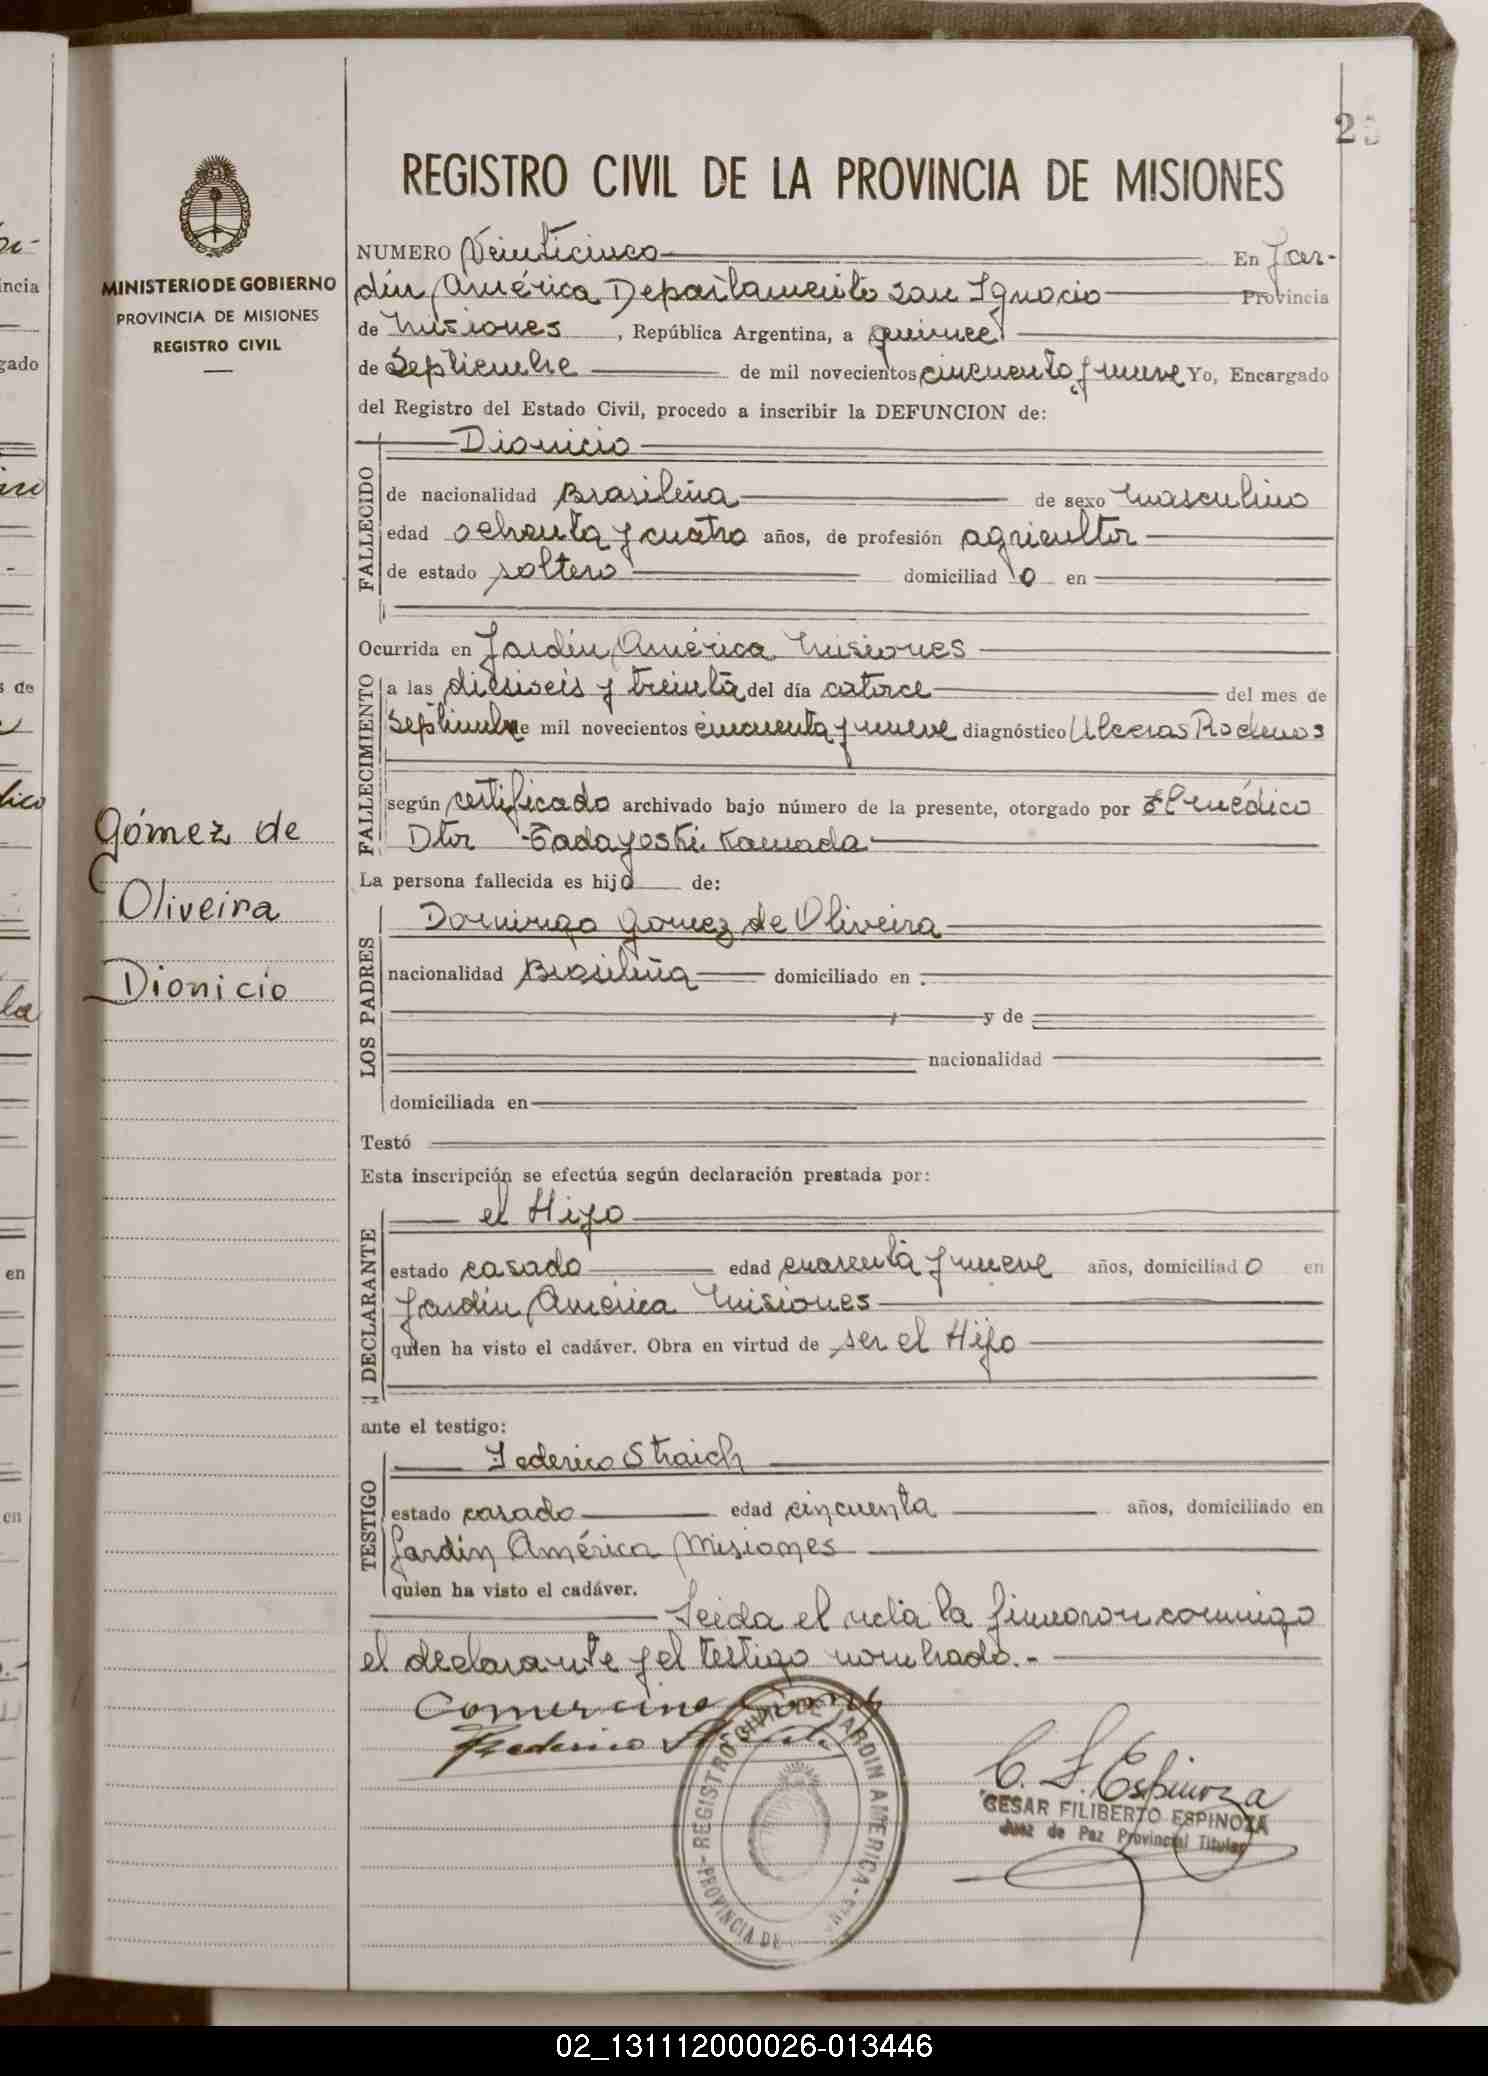 25
REGISTRO CIVIL DE LA PROVINCIA DE MISIONES
MINISTERIO DE GOBIERNO
PROVINCIA DE MISIONES
REGISTRO CIVIL
Gómez de
Oliveira
Dionicio
NUMERO Veinticinco En Jar-
dín América Departamento San Ignacio Provincia
de Misiones, República Argentina, a quince
de Septiembre de mil novecientos cincuenta y nueve Yo, Encargado
del Registro del Estado Civil, procedo a inscribir la DEFUNCION de:
Dionicio
FALLECIDO
de nacionalidad Brasileña de sexo Masculino
edad ochenta y cuatro años, de profesión agricultor
de estado soltero domiciliad o en
Ocurrida en Jardín América Misiones
FALLECIMIENTO
a las diesiseis y treinta del día catorce del mes de
Septiembre mil novecientos cincuenta y nueve diagnóstico Ulceras
según certificado archivado bajo número de la presente, otorgado por El médico
Dtor Tadayoski Kamada
La persona fallecida es hijo de:
LOS PADRES
Domingo Gomez de Oliveira
nacionalidad Brasileña domiciliado en
y de
nacionalidad
domiciliada en
Testó
Esta inscripción se efectúa según declaración prestada por:
DECLARANTE
el Hijo
estado casado edad cuarenta y nueve años, domiciliad o en
Jardín América Misiones
quien ha visto el cadáver. Obra en virtud de ser el Hijo
ante el testigo:
TESTIGO
Federico Straich
estado casado edad cincuenta años, domiciliado en
Jardín América Misiones
quien ha visto el cadáver.
Leida el acta la firmaron conmigo
el declarante y el testigo nombrado.-
Federico
REGISTRO CIVIL DE JARDIN AMERICA - PROVINCIA DE
C. F. Espinoza
CESAR FILIBERTO ESPINOZA
Juez de Paz Provincial Titular
02_131112000026-013446